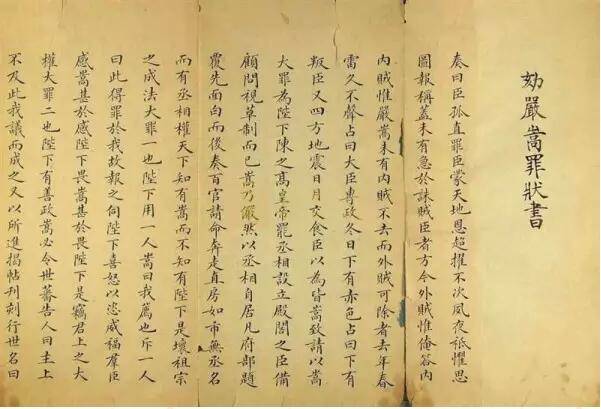 劾嚴嵩罪狀書
奏曰臣孤直罪臣蒙天地恩超擢不次夙夜祗懼思
圖報稱蓋未有急於誅賊臣者方今外賊惟俺答內
內賊惟嚴嵩未有內賊不去而外賊可除者去年春
雷久不聲占曰大臣專政冬日下有赤色占曰下有
叛臣又四方地震日月交食臣以為皆嵩致請以嵩
大罪為陛下陳之高皇帝罷丞相設立殿閣之臣備
顧問視草制而已嵩乃儼然以丞相自居凡府部題
覆先面白而後奏百官請命奔走直房如市無丞名
而有丞相權天下知有嵩而不知有陛下是壞祖宗
之成法大罪一也陛下用一人嵩曰我薦也斥一人
曰此得罪於我故報之伺陛下喜怒以恣威福羣臣
感嵩甚於感陛下畏嵩甚於畏陛下是竊君上之大
權大罪二也陛下有善政嵩必令世蕃告人曰主上
不及此我議而成之又以所進揭帖刊刻行世名曰